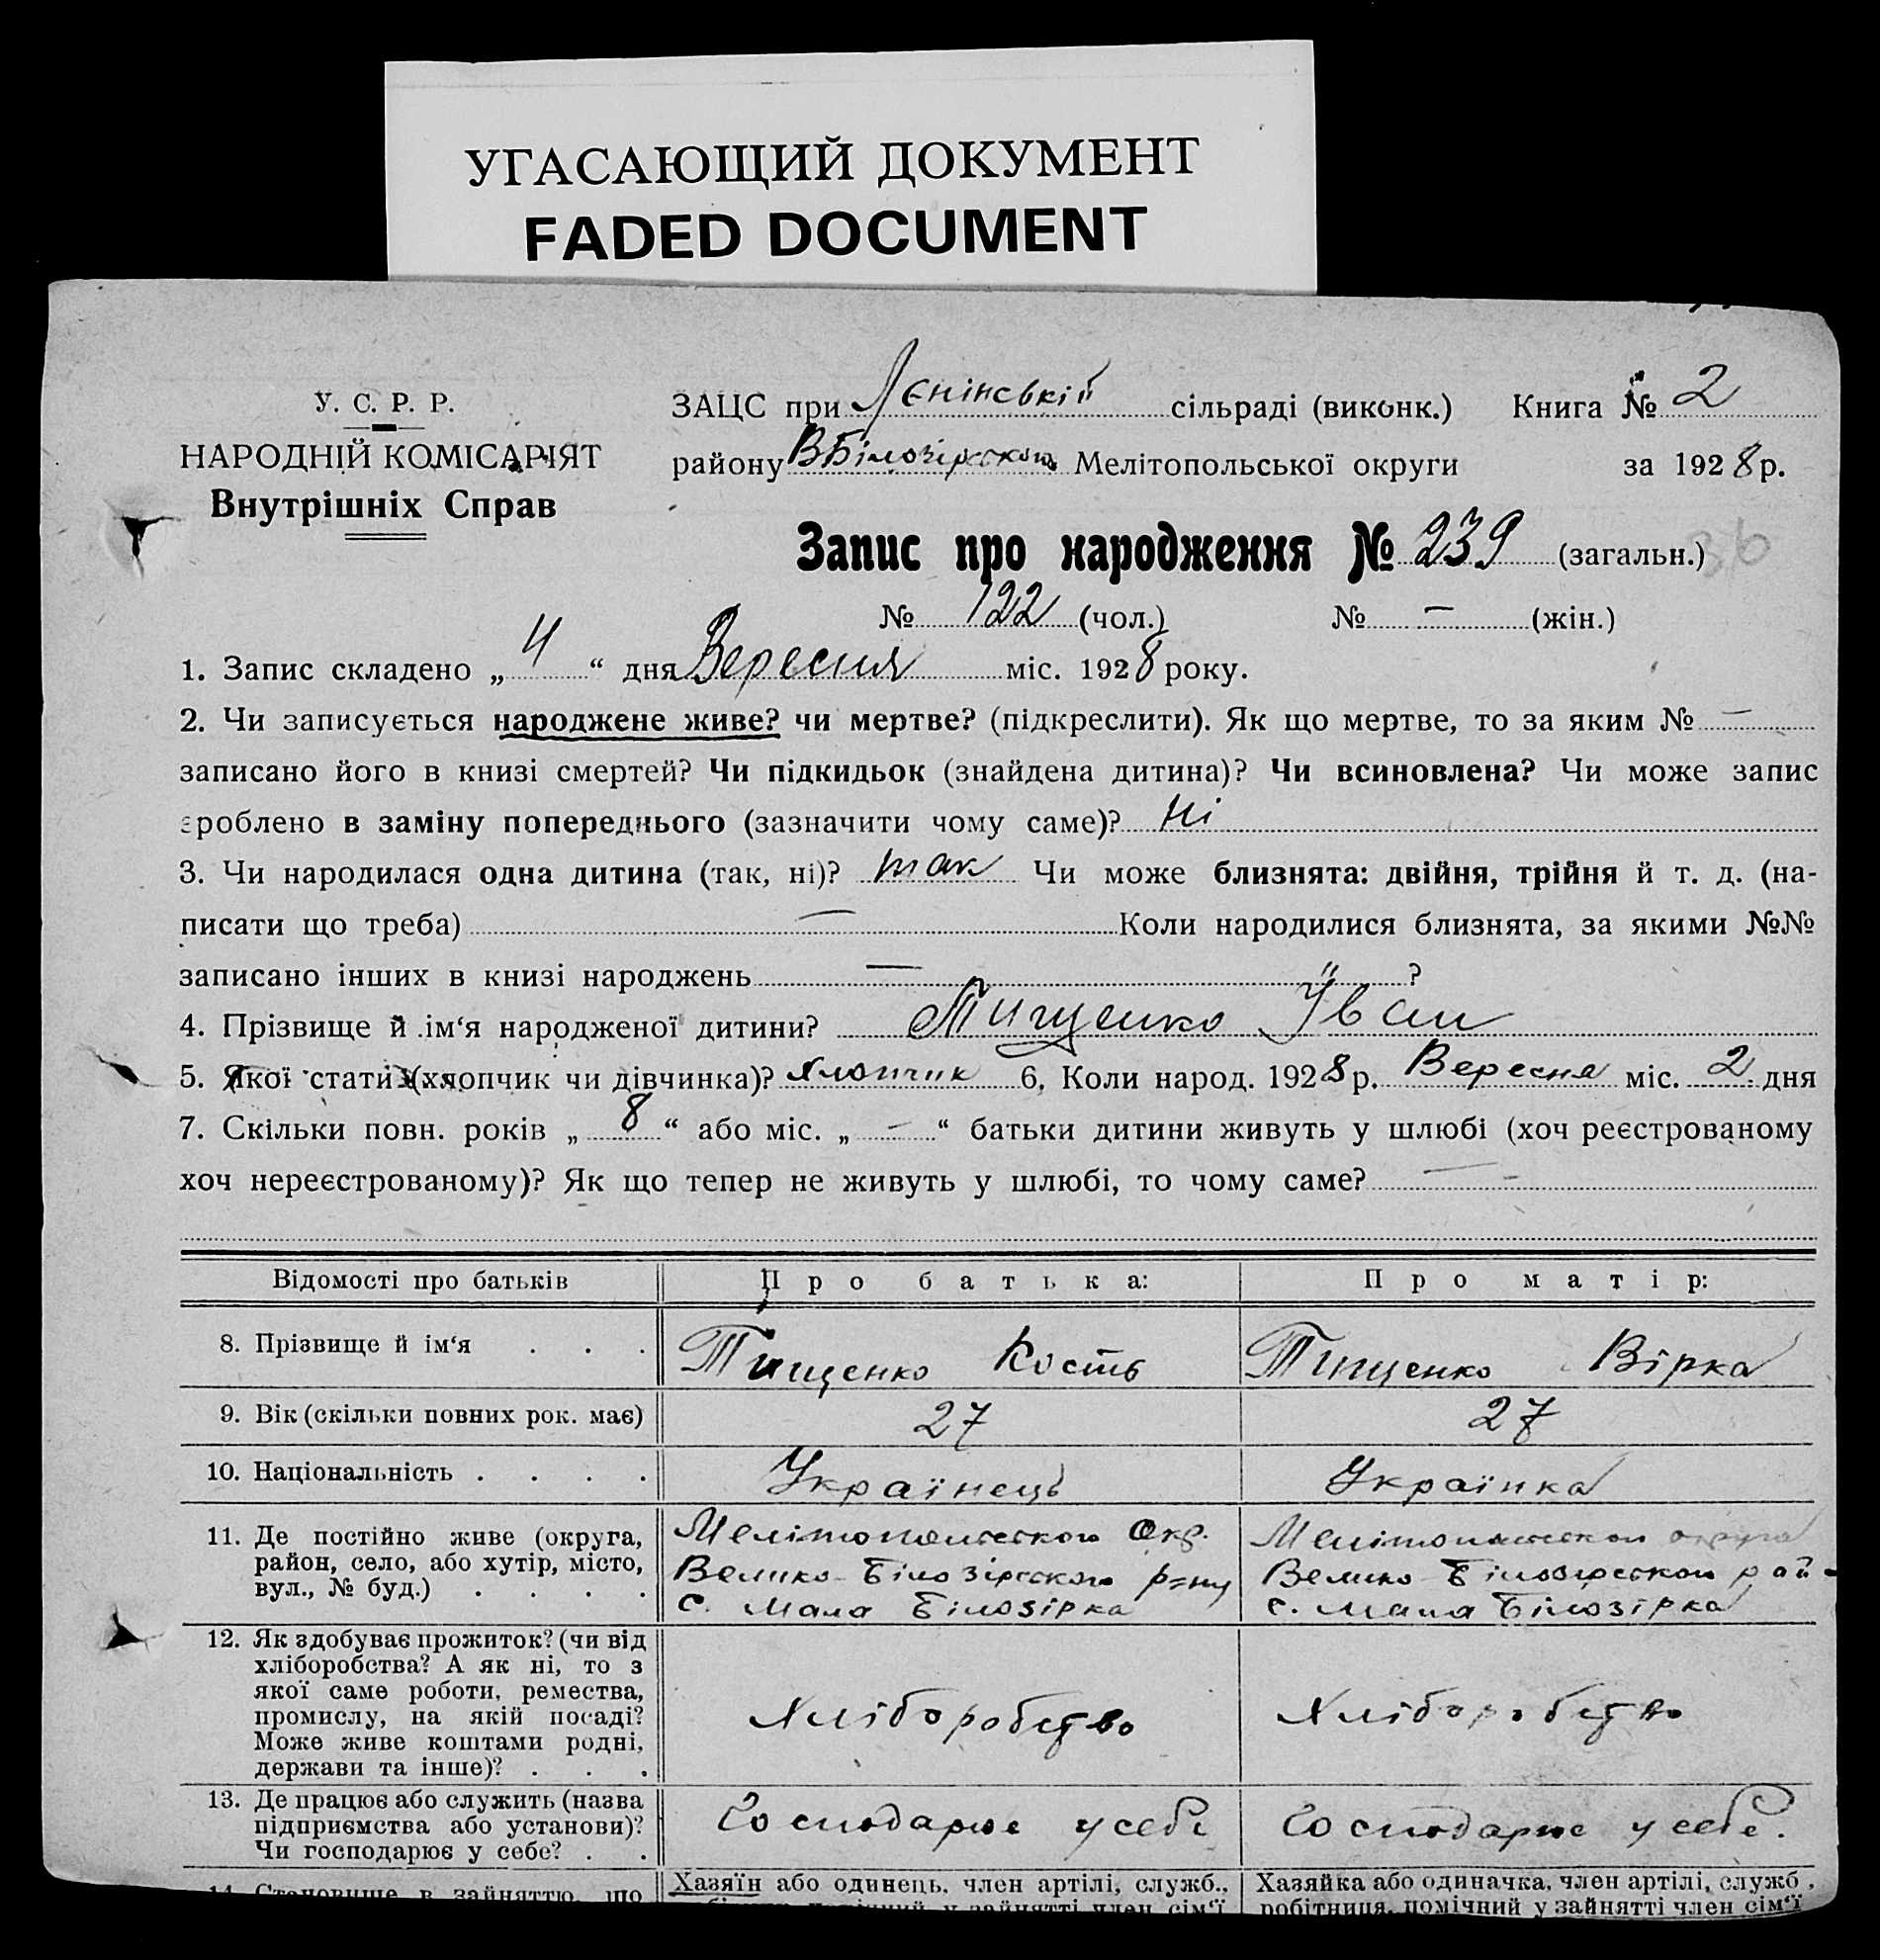 УГАСАЮЩИЙ ДОКУМЕНТ
FADED DOCUMENT
У. С. Р. Р.
НАРОДНІЙ КОМІСАРІЯТ
Внутрішніх Справ
ЗАЦС при Лєнінській сільраді (виконк.) Книга № 2
району ВБілозірского Мелітопольської округи за 1928 р.
Запис про народження № 239 (загальн.) 36
№ 122 (чол.) № — (жін.)
1. Запис складено „ 4 “ дня Вересня міс. 1928 року.
2. Чи записується народжене живе? чи мертве? (підкреслити). Як що мертве, то за яким № —
записано його в книзі смертей? Чи підкидьок (знайдена дитина)? Чи всиновлена? Чи може запис
зроблено в заміну попереднього (зазначити чому саме)? Ні
3. Чи народилася одна дитина (так, ні)? так Чи може близнята: двійня, трійня й т. д. (на-
писати що треба) — Коли народилися близнята, за якими №№
записано інших в книзі народжень — ?
4. Прізвище й ім‘я народженої дитини? Тищенко Іван
5. Якої статі (хлопчик чи дівчинка)? Хлопчик 6, Коли народ. 1928 р. Вересня міс. 2 дня
7. Скільки повн. років „ 8 “ або міс. „ — “ батьки дитини живуть у шлюбі (хоч реєстрованому
хоч нереєстрованому)? Як що тепер не живуть у шлюбі, то чому саме? —
Відомості про батьків Про батька: Про матір:
8. Прізвище й ім‘я . . . Тищенко Кость Тищенко Вірка
9. Вік (скільки повних рок. має) 27 27
10. Національність . . . . Українець Українка
11. Де постійно живе (округа, Мелітопольского Окр. Мелітопольской округа
район, село, або хутір, місто, Велико-Білозірского р-ну Велико Білозірского рай-
вул., № буд.) . . . . с. Мала Білозірка с. Мала Білозірка
12. Як здобуває прожиток? (чи від
хліборобства? А як ні, то з
якої саме роботи, ремества,
промислу, на якій посаді? Хліборобство Хліборобство
Може живе коштами родні,
держави та інше)? . . .
13. Де працює або служить (назва
підприємства або установи)? Господарює у себе Господарює у себе.
Чи господарює у себе? . .
14. Становище в зайняттю, що Хазяїн або одинець, член артілі, служб., Хазяйка або одиначка, член артілі, служб.,
помічний у зайнятті член сім‘ї робітниця, помічний у зайнятті член сім‘ї